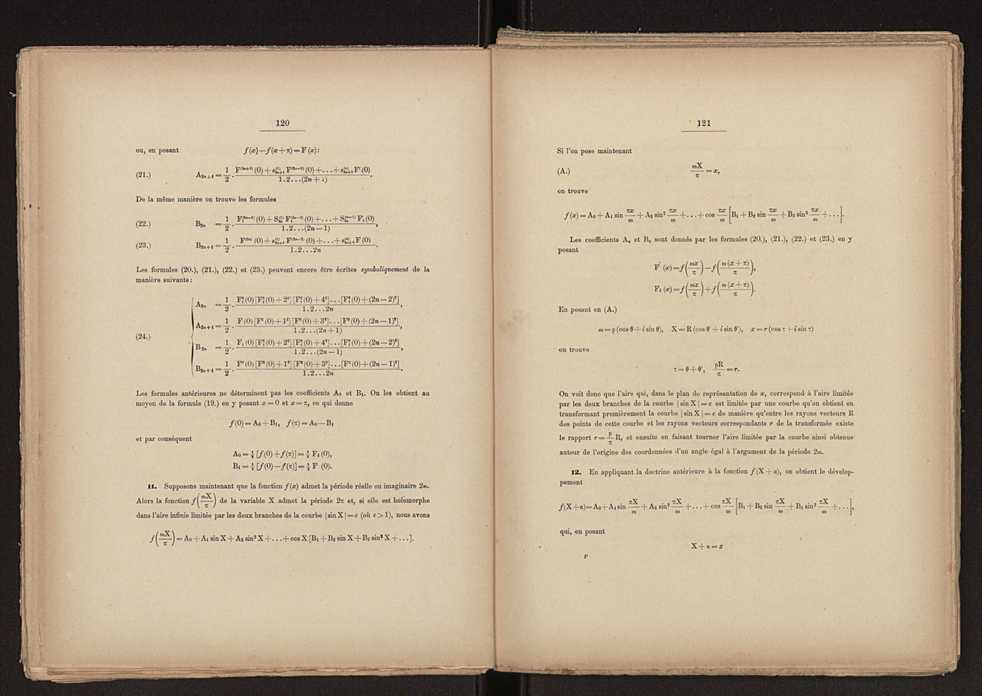 120
ou, en posant f(x) − f(x+π) = F(x):
(21.) A₂ₙ₊₁ = 1/2 ·
De la même manière on trouve les formules
(22.) B₂ₙ = 1/2 ·
(23.) B₂ₙ₊₁ = 1/2 ·
Les formules (20.), (21.), (22.) et (23.) peuvent encore être écrites symboliquement de la
manière suivante:
(24.)
Les formules antérieures ne déterminent pas les coefficients A₀ et B₁. On les obtient au
moyen de la formule (19.) en y posant x = 0 et x = π, ce qui donne
f(0) = A₀ + B₁, f(π) = A₀ − B₁
et par conséquent
A₀ = ½ [f(0) + f(π)] = ½ F₁(0),
B₁ = ½ [f(0) − f(π)] = ½ F (0).
11. Supposons maintenant que la fonction f(x) admet la période réelle ou imaginaire 2ω.
Alors la fonction f(ωX/π) de la variable X admet la période 2π et, si elle est holomorphe
dans l'aire infinie limitée par les deux branches de la courbe | sin X | = c (où c > 1), nous avons
f(ωX/π) = A₀ + A₁ sin X + A₂ sin² X + ... + cos X [B₁ + B₂ sin X + B₃ sin² X + ...].
121
Si l'on pose maintenant
(A.) ωX/π = x,
on trouve
f(x) = A₀ + A₁ sin πx/ω + A₂ sin² πx/ω + ... + cos πx/ω [B₁ + B₂ sin πx/ω + B₃ sin² πx/ω + ...].
Les coefficients Aₙ et Bₙ sont donnés par les formules (20.), (21.), (22.) et (23.) en y
posant
F (x) = f(ωx/π) − f(ω(x+π)/π),
F₁(x) = f(ωx/π) + f(ω(x+π)/π).
En posant en (A.)
ω = ρ(cos θ + i sin θ), X = R(cos θ' + i sin θ'), x = r(cos τ + i sin τ)
on trouve
τ = θ + θ', ρR/π = r.
On voit donc que l'aire qui, dans le plan de représentation de x, correspond à l'aire limitée
par les deux branches de la courbe | sin X | = c est limitée par une courbe qu'on obtient en
transformant premièrement la courbe | sin X | = c de manière qu'entre les rayons vecteurs R
des points de cette courbe et les rayons vecteurs correspondants r de la transformée existe
le rapport r = ρ/π R, et ensuite en faisant tourner l'aire limitée par la courbe ainsi obtenue
autour de l'origine des coordonnées d'un angle égal à l'argument de la période 2ω.
12. En appliquant la doctrine antérieure à la fonction f(X + a), on obtient le dévelop-
pement
f(X+a) = A₀ + A₁ sin πX/ω + A₂ sin² πX/ω + ... + cos πX/ω [B₁ + B₂ sin πX/ω + B₃ sin² πX/ω + ...],
qui, en posant
X + a = x
P